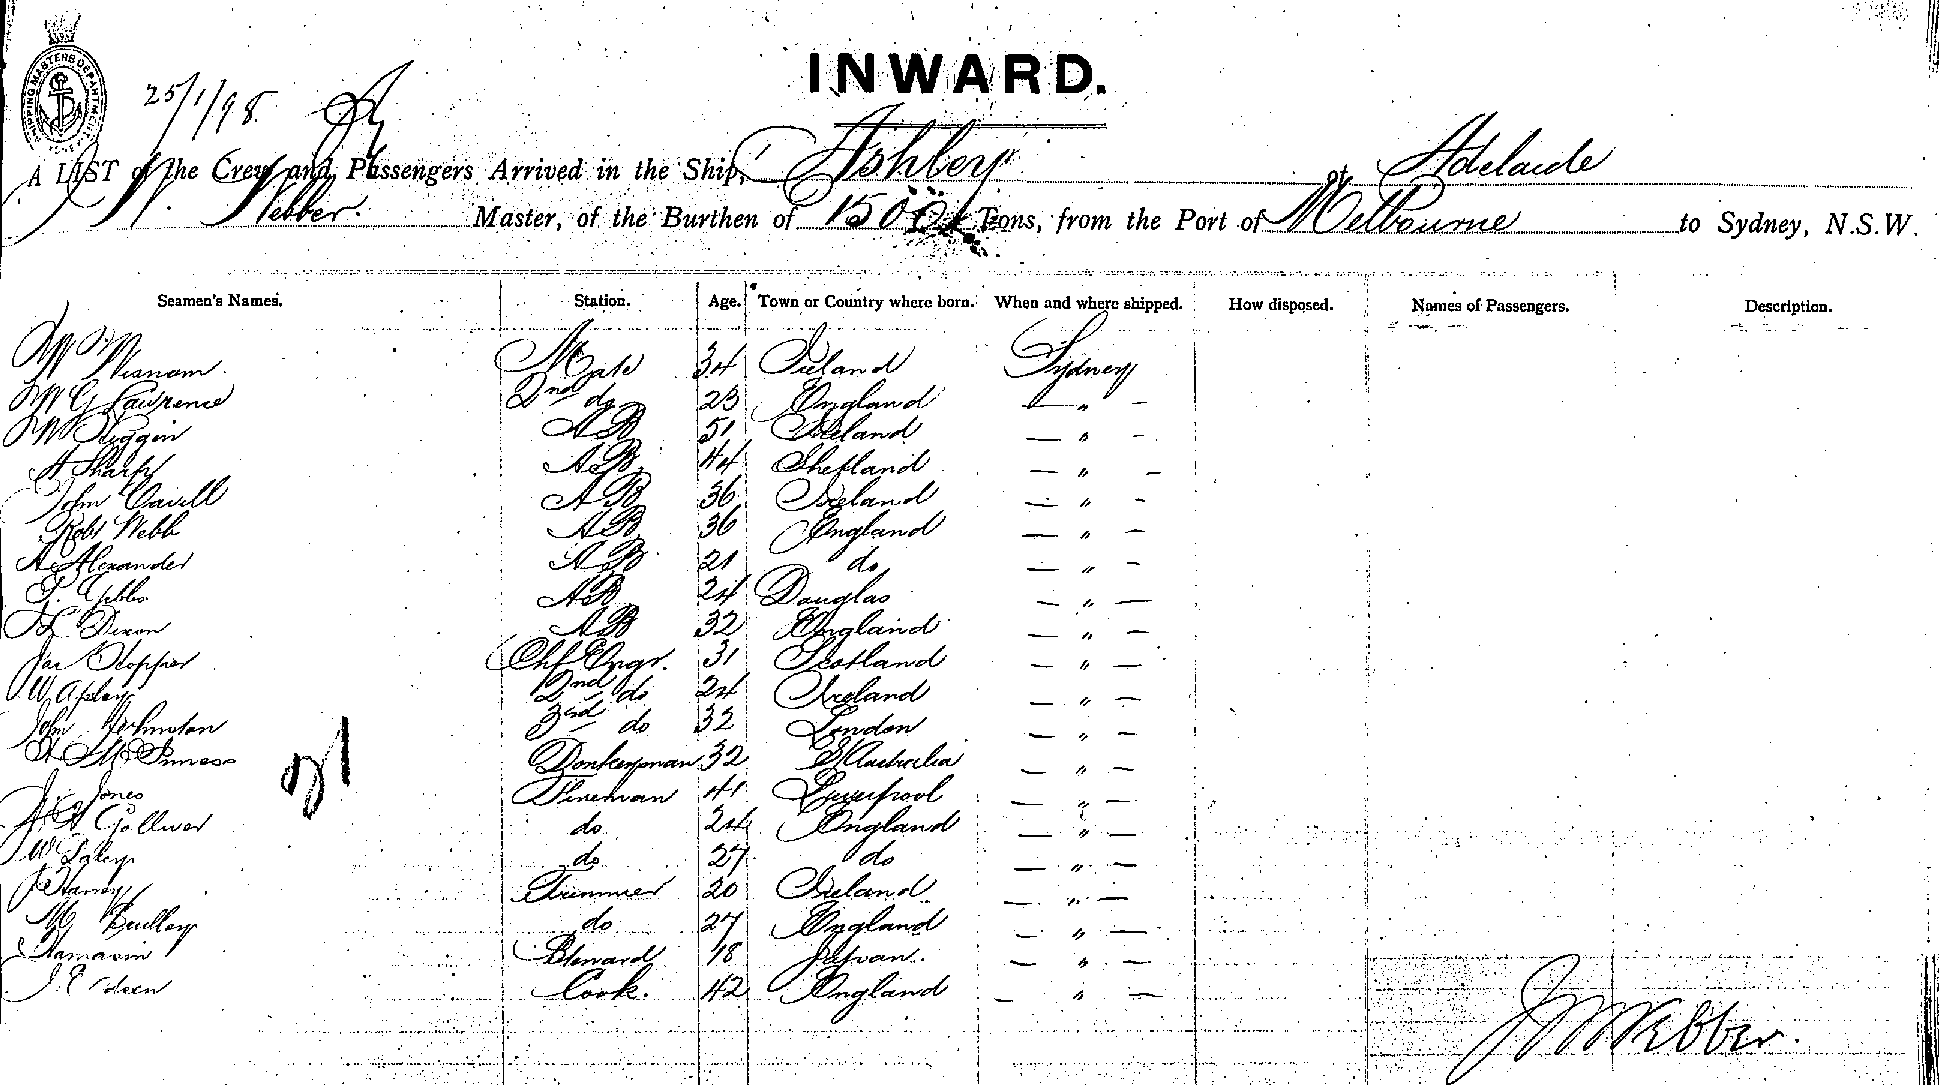 SHIPPING MASTERS DEPARTMENT
25/1/98.
INWARD.
A LIST of the Crew and Passengers Arrived in the Ship, Ashley of Adelaide
J. W. Webber. Master, of the Burthen of 1500 Tons, from the Port of Melbourne to Sydney, N.S.W.
Seamen's Names. Station. Age. Town or Country where born. When and where shipped. How disposed. Names of Passengers. Description.
Mate 34 Ireland Sydney
W G Lawrence 2nd do 23 England — " —
W Higgin AB 51 Ireland — " —
A Sharp AB 44 Shetland — " —
John Cavill AB 36 Ireland — " —
Robt Webb AB 36 England — " —
A Alexander AB 21 do — " —
AB 24 Douglas — " —
H Dixon AB 32 England — " —
Jas Hopper Chf Engr. 31 Scotland — " —
W 2nd do 24 Ireland — " —
John Johnston 3rd do 32 London — " —
A McInnes Donkeyman 32 S Australia — " —
J. Jones Fireman 41 Liverpool — " —
A Golliver do 24 England — " —
W do 27 do — " —
J Trimmer 20 Ireland — " —
M do 27 England — " —
Hamasin Steward 18 Japan. — " —
J Cook. 42 England — " —
21
J W Webber.